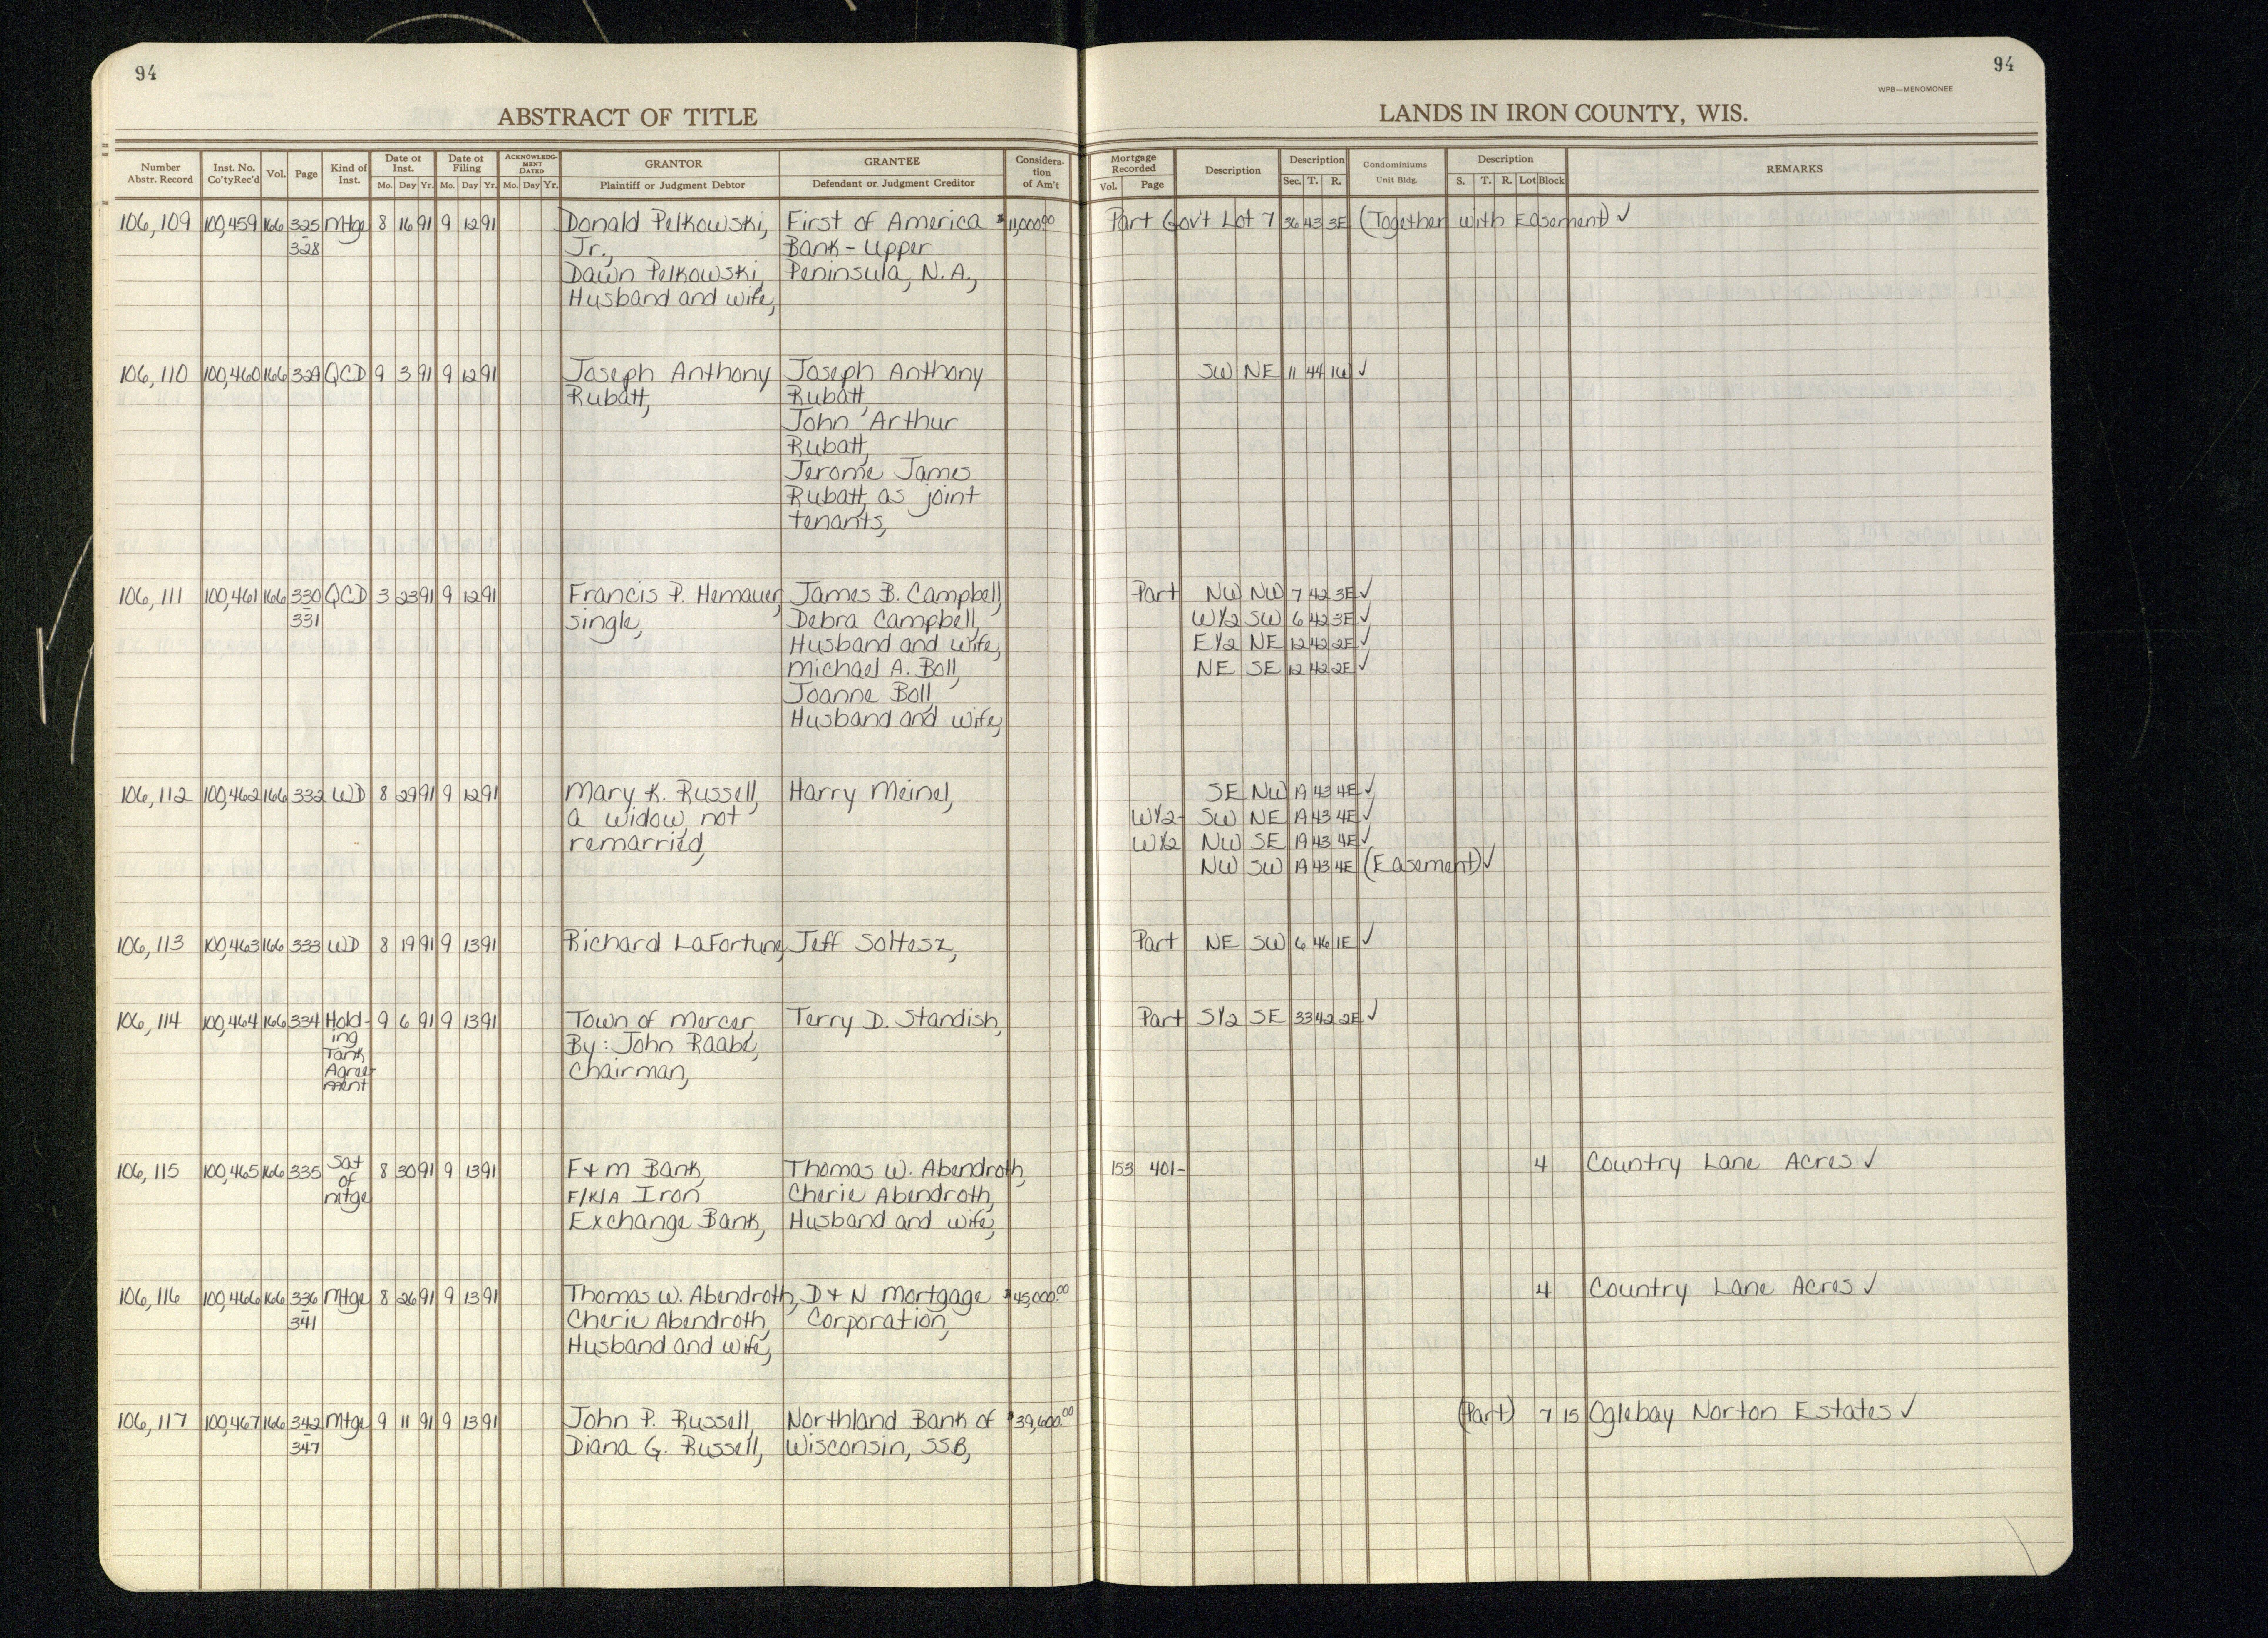 94
94
WPB—MENOMONEE
ABSTRACT OF TITLE
LANDS IN IRON COUNTY, WIS.
Number Abstr. Record | Inst. No. Co'ty Rec'd | Vol. | Page | Kind of Inst. | Date of Inst. Mo. Day Yr. | Date of Filing Mo. Day Yr. | ACKNOWLEDGMENT DATED Mo. Day Yr. | GRANTOR Plaintiff or Judgment Debtor | GRANTEE Defendant or Judgment Creditor | Consideration of Am't | Mortgage Recorded Vol. Page | Description | Description Sec. T. R. | Condominiums Unit Bldg. | Description S. T. R. Lot Block | REMARKS
106,109 100,459 166 325 Mtge 8 16 91 9 12 91 Donald Pelkowski, First of America $11,000.00 Part Gov't Lot 7 36 43 3E (Together with Easement) ✓
328 Jr., Bank - Upper
Dawn Pelkowski, Peninsula, N.A.,
Husband and wife,
106,110 100,460 166 329 QCD 9 3 91 9 12 91 Joseph Anthony Joseph Anthony SW NE 11 44 1W ✓
Rubatt, Rubatt,
John Arthur
Rubatt,
Jerome James
Rubatt, as joint
tenants,
106,111 100,461 166 330 QCD 3 23 91 9 12 91 Francis P. Hemauer, James B. Campbell, Part NW NW 7 42 3E ✓
331 single, Debra Campbell, W1/2 SW 6 42 3E ✓
Husband and wife, E1/2 NE 12 42 2E ✓
Michael A. Boll, NE SE 12 42 2E ✓
Joanne Boll,
Husband and wife,
106,112 100,462 166 332 WD 8 29 91 9 12 91 Mary K. Russell, Harry Meinel, SE NW 19 43 4E ✓
a widow, not W1/2- SW NE 19 43 4E ✓
remarried, W1/2 NW SE 19 43 4E ✓
NW SW 19 43 4E (Easement) ✓
106,113 100,463 166 333 WD 8 19 91 9 13 91 Richard LaFortune, Jeff Soltesz, Part NE SW 6 46 1E ✓
106,114 100,464 166 334 Hold- 9 6 91 9 13 91 Town of Mercer, Terry D. Standish, Part S1/2 SE 33 42 2E ✓
ing By: John Raabe,
Tank Chairman,
Agree-
ment
106,115 100,465 166 335 Sat 8 30 91 9 13 91 F & M Bank, Thomas W. Abendroth, 153 401- 4 Country Lane Acres ✓
of F/K/A Iron Cherie Abendroth,
mtge Exchange Bank, Husband and wife,
106,116 100,466 166 336 Mtge 8 26 91 9 13 91 Thomas W. Abendroth, D & N Mortgage $45,000.00 4 Country Lane Acres ✓
341 Cherie Abendroth, Corporation,
Husband and wife,
106,117 100,467 166 342 Mtge 9 11 91 9 13 91 John P. Russell, Northland Bank of $39,600.00 (Part) 7 15 Oglebay Norton Estates ✓
347 Diana G. Russell, Wisconsin, SSB,